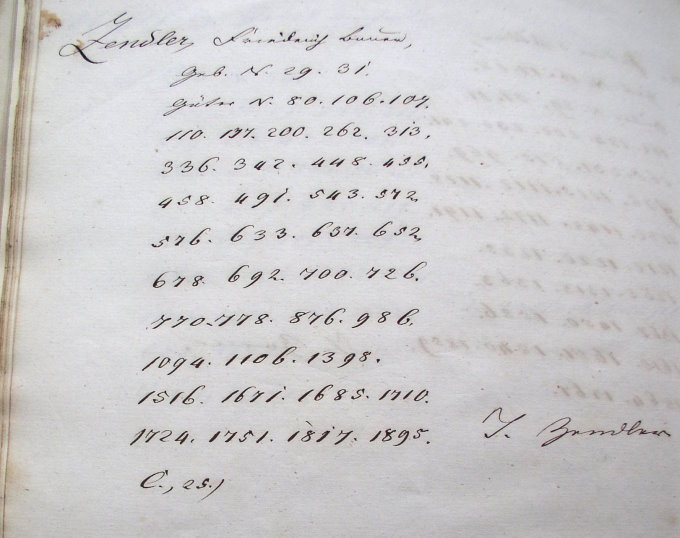 Zendler, Friedrich Bauer,
Geb. N. 29. 31.
Güter N. 80. 106. 107.
110. 197. 200. 262. 313.
336. 342. 448. 455.
458. 491. 543. 572.
576. 633. 637. 652.
678. 692. 700. 726.
770. 778. 876. 986.
1094. 1106. 1398.
1516. 1671. 1685. 1710.
1724. 1751. 1817. 1895.
C., 25.)
J. Zendler